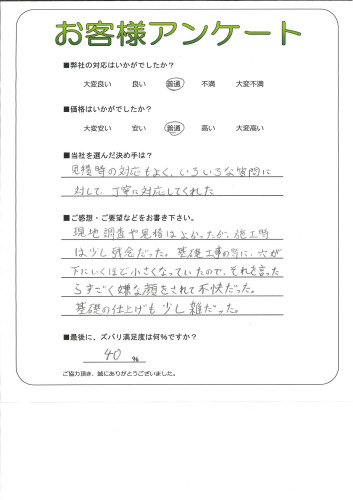 お客様アンケート
■弊社の対応はいかがでしたか？
大変良い 良い 普通 不満 大変不満
■価格はいかがでしたか？
大変安い 安い 普通 高い 大変高い
■当社を選んだ決め手は？
見積時の対応もよく、いろいろな質問に
対して、丁寧に対応してくれた
■ご感想・ご要望などをお書き下さい。
現地調査や見積はよかったが、施工時
は少し残念だった。基礎工事の時に、穴が
下にいくほど小さくなっていたので、それを言った
らすごく嫌な顔をされて不快だった。
基礎の仕上げも少し雑だった。
■最後に、ズバリ満足度は何％ですか？
40 ％
ご協力頂き、誠にありがとうございました。